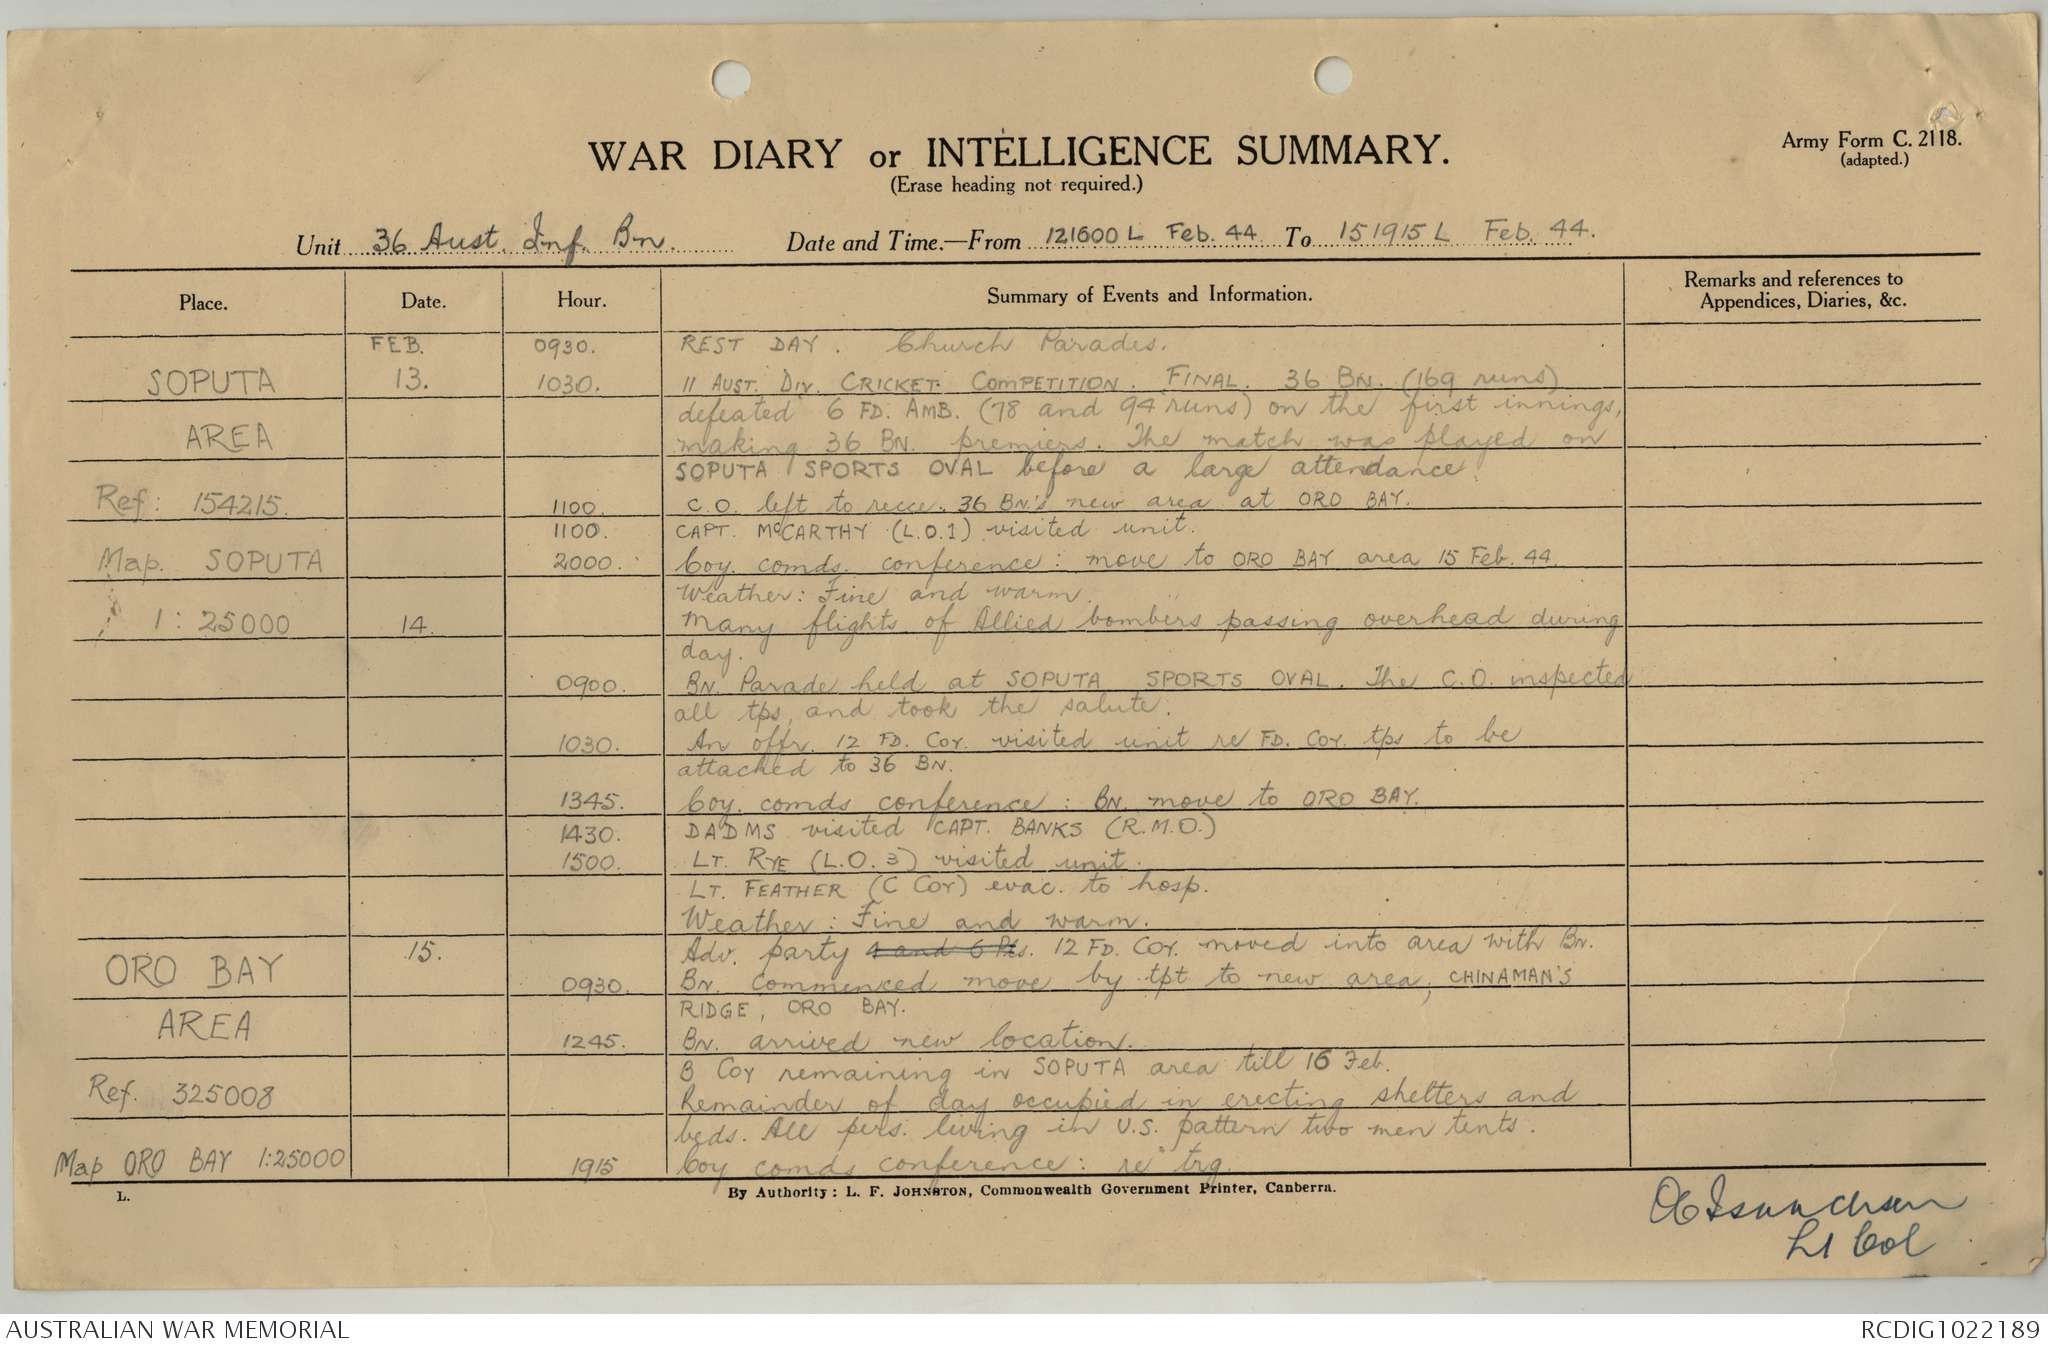 WAR DIARY or INTELLIGENCE SUMMARY.
(Erase heading not required.)
Army Form C. 2118.
(adapted.)
Unit 36 Aust. Inf. Bn. Date and Time.—From 121600 L Feb. 44 To 151915 L Feb. 44.
Place. Date. Hour. Summary of Events and Information. Remarks and references to
Appendices, Diaries, &c.
FEB. 0930. REST DAY. Church Parades.
SOPUTA 13. 1030. 11 AUST. DIV. CRICKET COMPETITION. FINAL. 36 BN. (169 runs)
defeated 6 FD. AMB. (78 and 94 runs) on the first innings,
AREA making 36 BN. premiers. The match was played on
SOPUTA SPORTS OVAL before a large attendance.
Ref: 154215. 1100. C.O. left to recce. 36 BN.'s new area at ORO BAY.
1100. CAPT. McCARTHY (L.O.1) visited unit.
Map. SOPUTA 2000. Coy. comds. conference: move to ORO BAY area 15 Feb. 44.
Weather: Fine and warm.
1:25000 14. Many flights of Allied bombers passing overhead during
day.
0900. BN. Parade held at SOPUTA SPORTS OVAL. The C.O. inspected
all tps, and took the salute.
1030. An offr. 12 FD. COY. visited unit re FD. COY. tps to be
attached to 36 BN.
1345. Coy. comds conference: BN. move to ORO BAY.
1430. DADMS visited CAPT. BANKS (R.M.O.)
1500. LT. RYE (L.O. 3) visited unit.
LT. FEATHER (C COY) evac. to hosp.
Weather: Fine and warm.
ORO BAY 15. Adv. party 4 and 6 Pls. 12 FD. COY. moved into area with BN.
0930. BN. commenced move by tpt to new area, CHINAMAN'S
RIDGE, ORO BAY.
AREA 1245. BN. arrived new location.
B COY remaining in SOPUTA area till 16 Feb.
Ref. 325008 Remainder of day occupied in erecting shelters and
beds. All pers. living in U.S. pattern two men tents.
Map ORO BAY 1:25000 1915 Coy comds conference: re trg.
L. By Authority: L. F. JOHNSTON, Commonwealth Government Printer, Canberra.
Lt Col
AUSTRALIAN WAR MEMORIAL RCDIG1022189